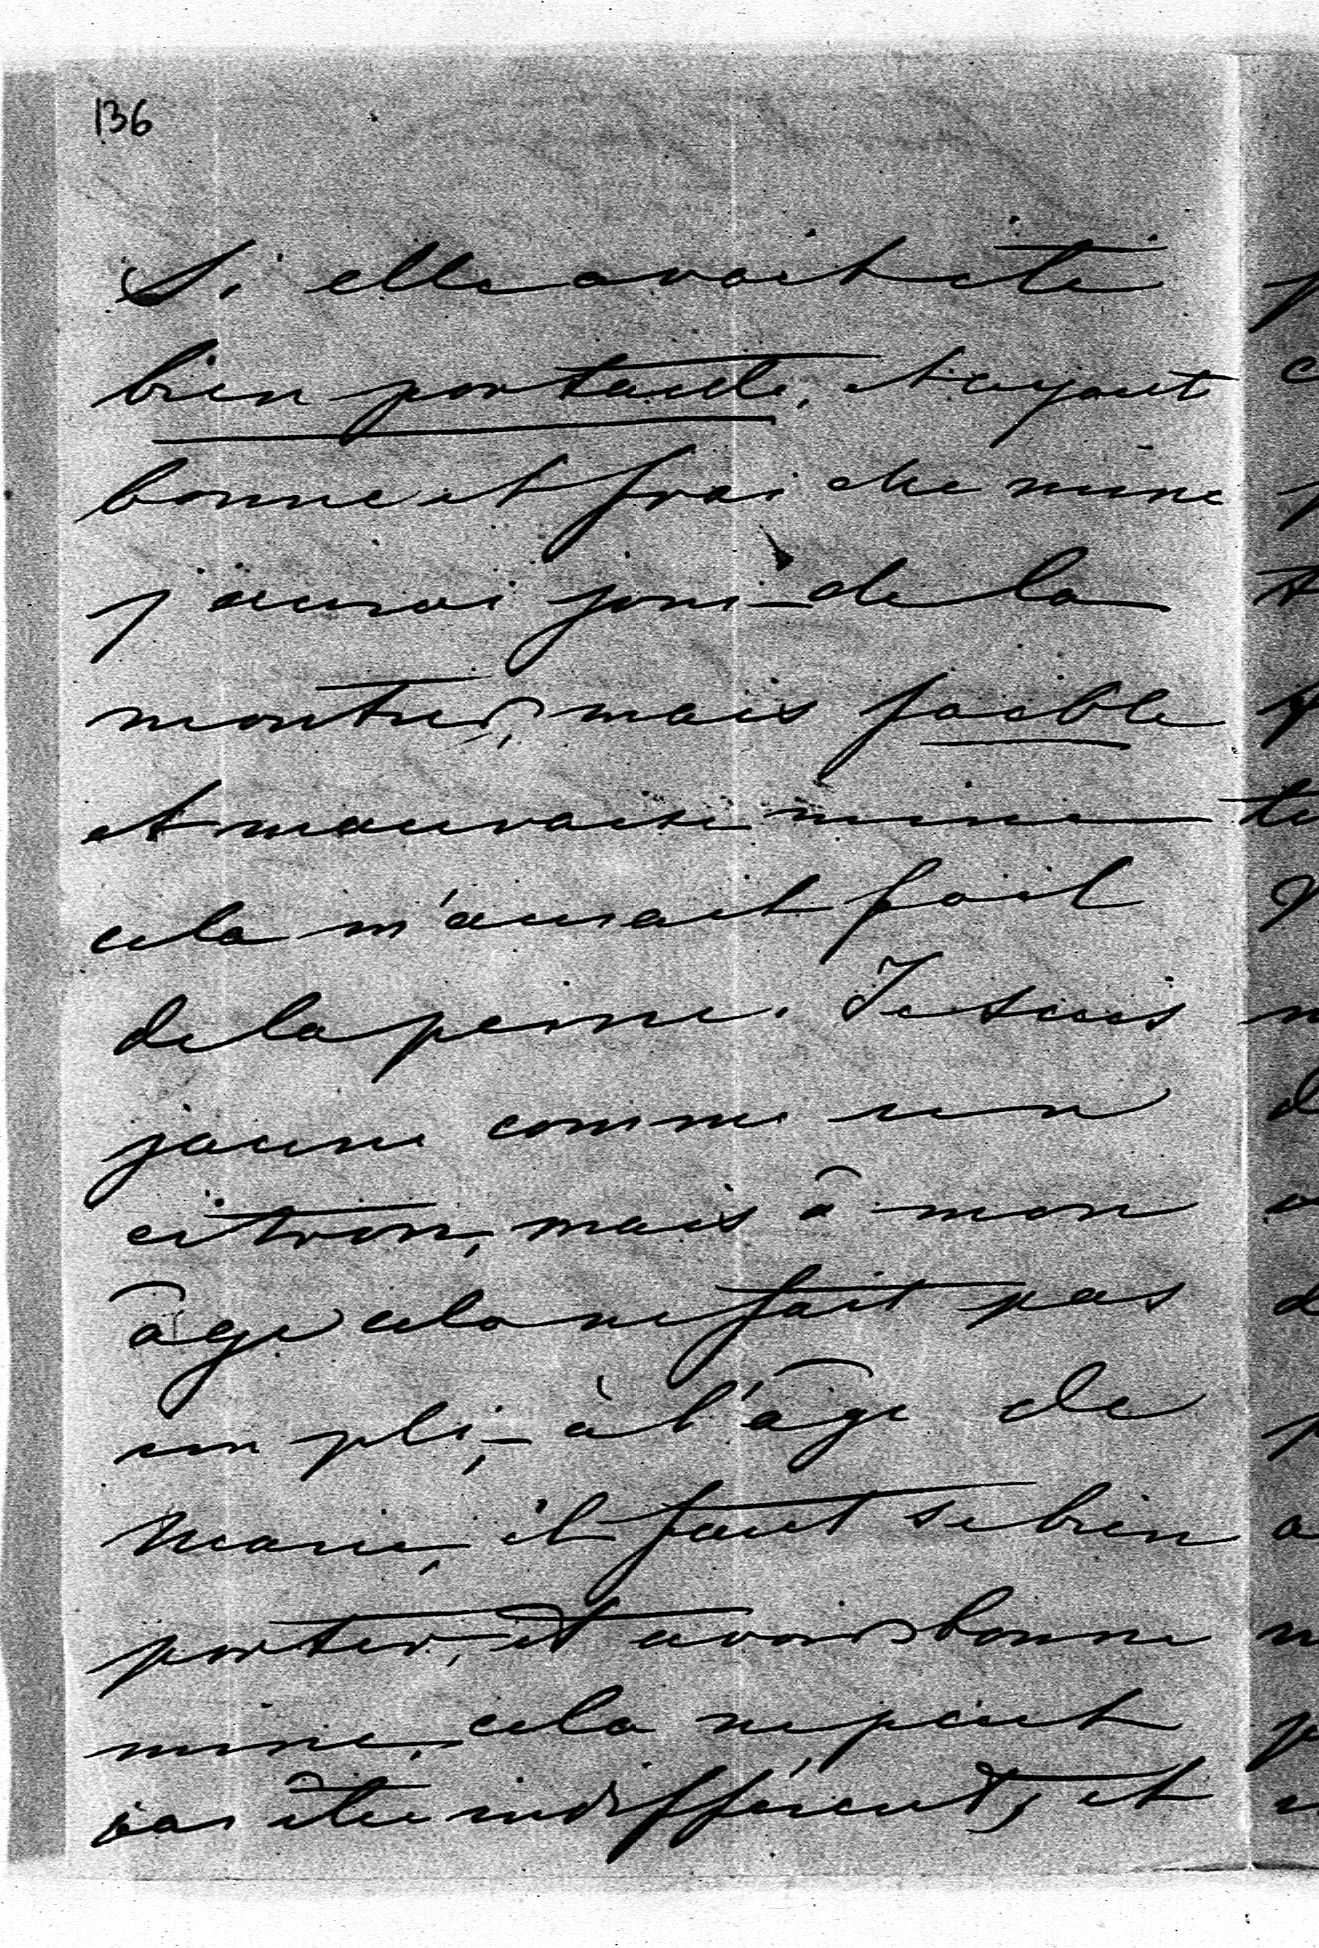 136
Si elle avait été
bien portante, et ayant
bonne et fraiche mine
j'aurai joui de la
montrer, mais faible
et mauvaise mine
cela m'aurait fait
de la peine. Je suis
jaune comme un
citron, mais à mon
âge cela ne fait pas
un pli, à l'âge de
Marie, il faut se bien
porter, et avoir bonne
mine, cela ne peut
pas être indifférent, et